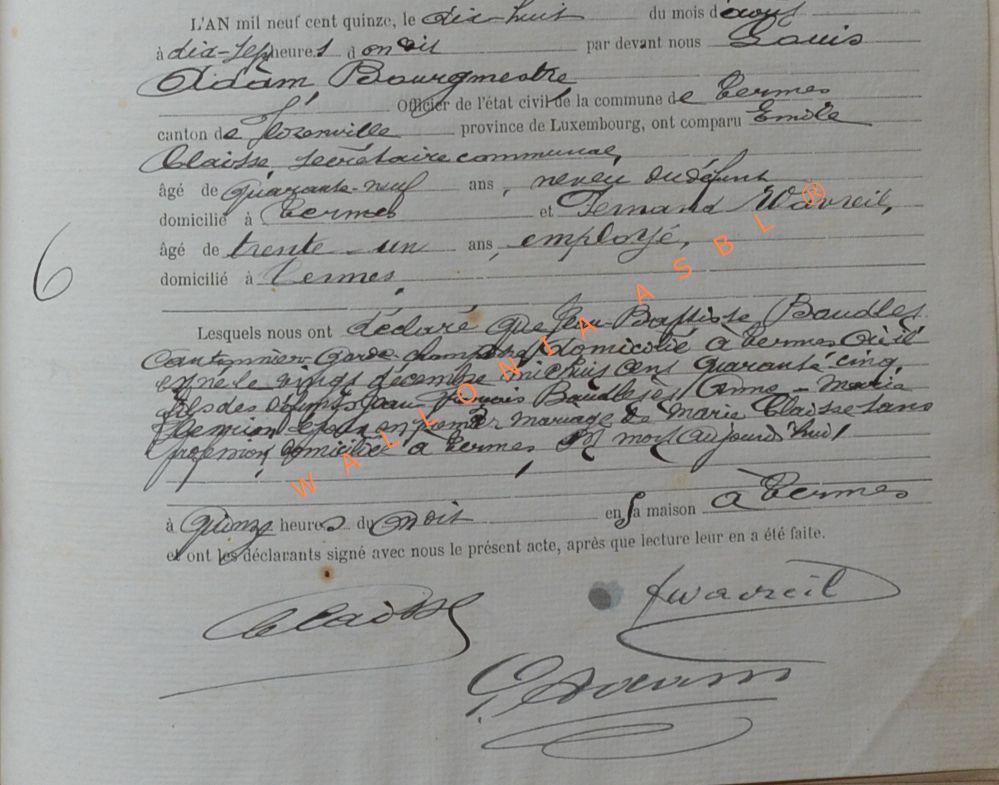 L'AN mil neuf cent quinze, le dix-huit du mois d'août
à dix-sept heures d u soir par devant nous Louis
Adam, Bourgmestre
Officier de l'état civil de la commune de Termes
canton de Florenville province de Luxembourg, ont comparu Emile
Claisse, secrétaire communal,
âgé de quarante-neuf ans, neveu du défunt
domicilié à Termes et Fernand Wavreil,
âgé de trente-un ans, employé,
domicilié à Termes,
6
Lesquels nous ont déclaré que Jean-Baptiste Baudlet
cantonnier-garde-champêtre, domicilié à Termes où il
est né le vingt décembre mil huit cent quarante cinq,
fils des défunts Jean François Baudlet et Anne-Marie
époux en premier mariage de Marie Claisse sans
profession, domiciliée à Termes, est mort aujourd'hui
à quinze heures du soir en sa maison à Termes
et ont les déclarants signé avec nous le présent acte, après que lecture leur en a été faite.
EClaisse FWavreil
L. Adam
WALLONIA ASBL ®